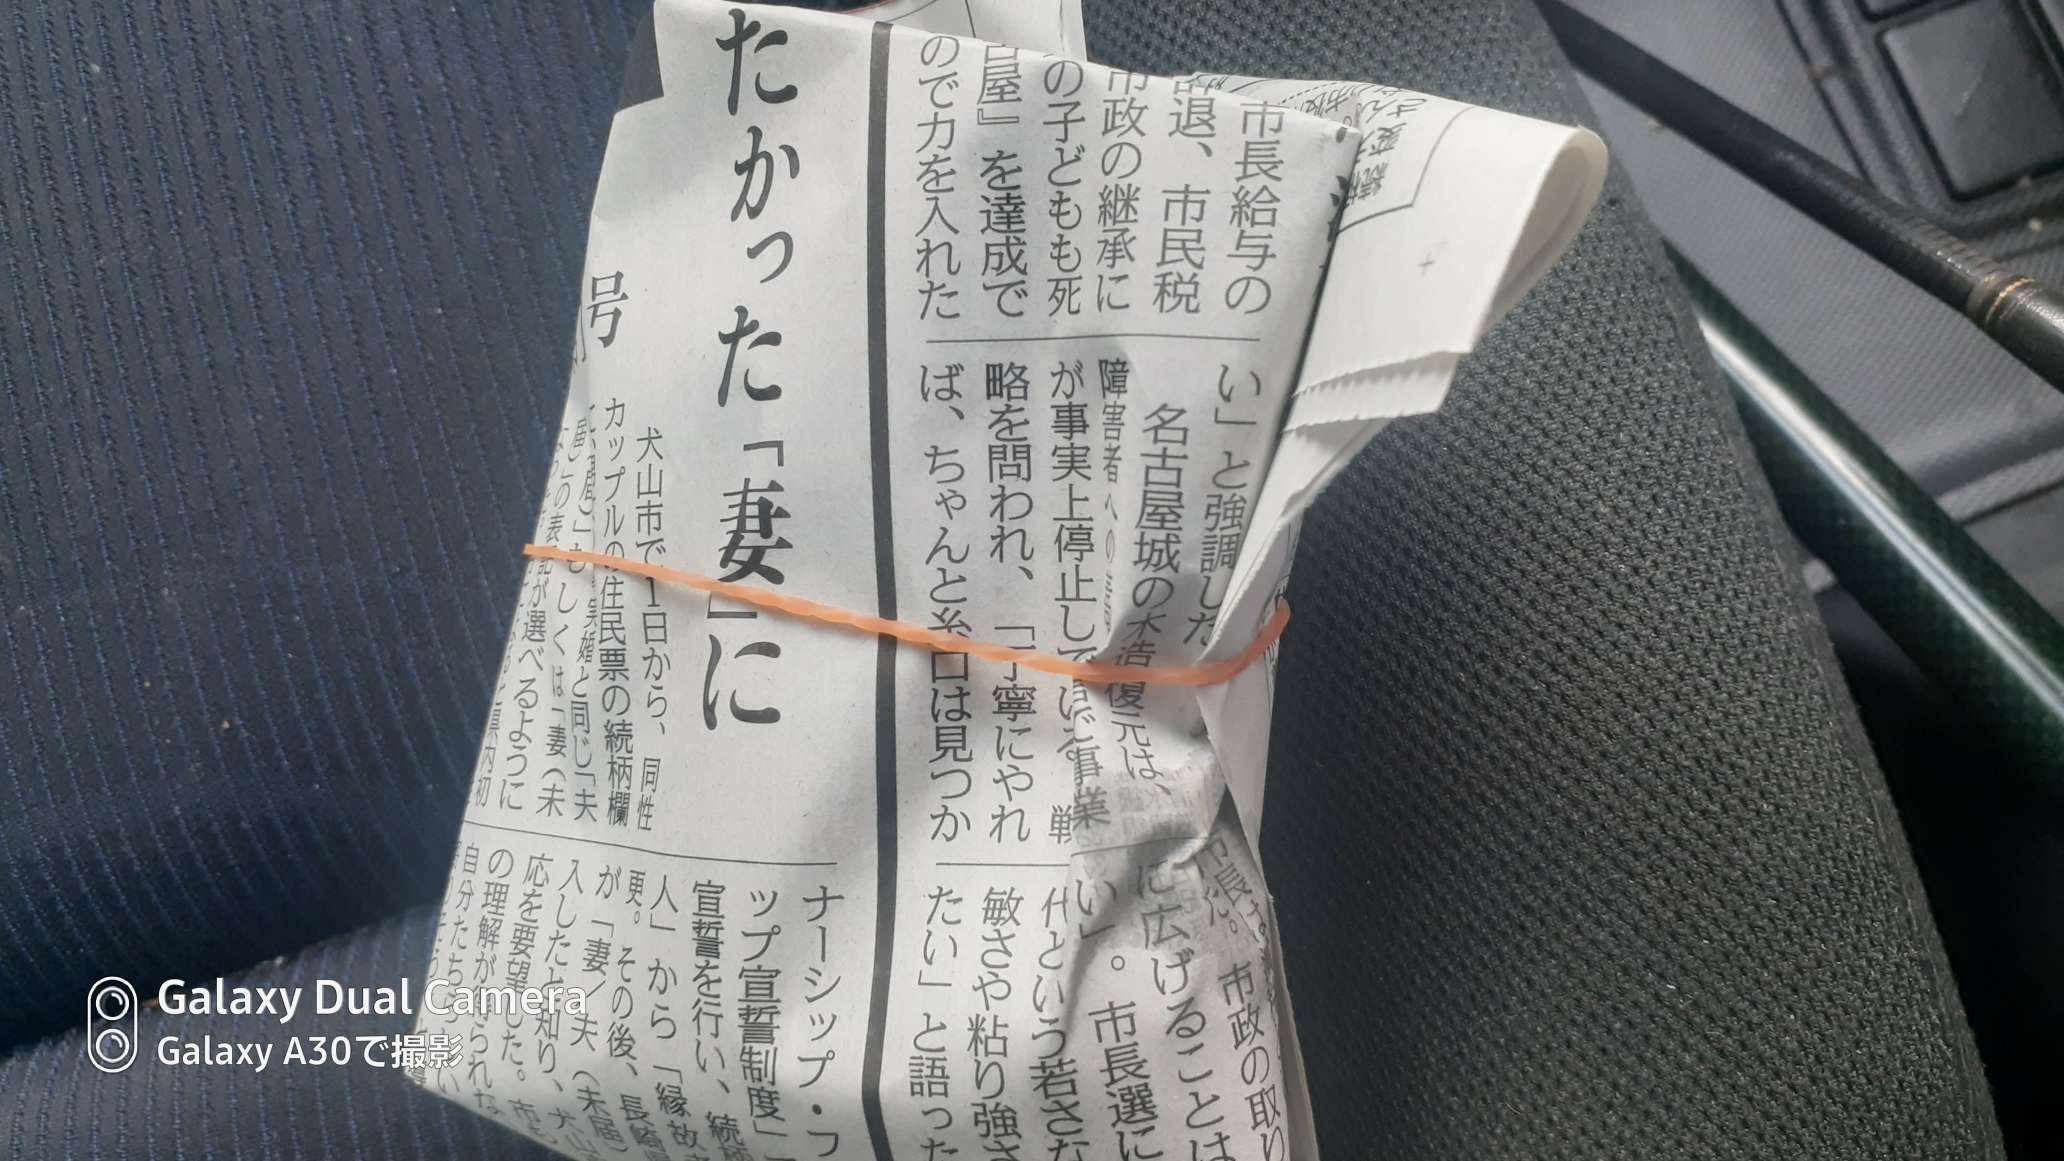 市長給与の
退、市民税
市政の継承に
の子どもも死
屋』を達成で
ので力を入れた
い」と強調した
名古屋城の木造復元は、
障害者への
が事実上停止している事業
略を問われ、「丁寧にやれ
ば、ちゃんと糸口は見つか
に広げることは
い」。市長選に
代という若さな
敏さや粘り強さ
たい」と語った
市政の取り
たかった「妻」に
号
犬山市で1日から、同性
カップルの住民票の続柄欄
」もしくは「妻(未
が選べるように
県内初
ナーシップ・フ
ップ宣誓制度」
宣誓を行い、続柄
人」から「縁故者
更。その後、長崎県
が「妻/夫(未届)
入したと知り、犬山
応を要望した。市
の理解が得られな
自分たち
続
変
さん
Galaxy Dual Camera
Galaxy A30で撮影